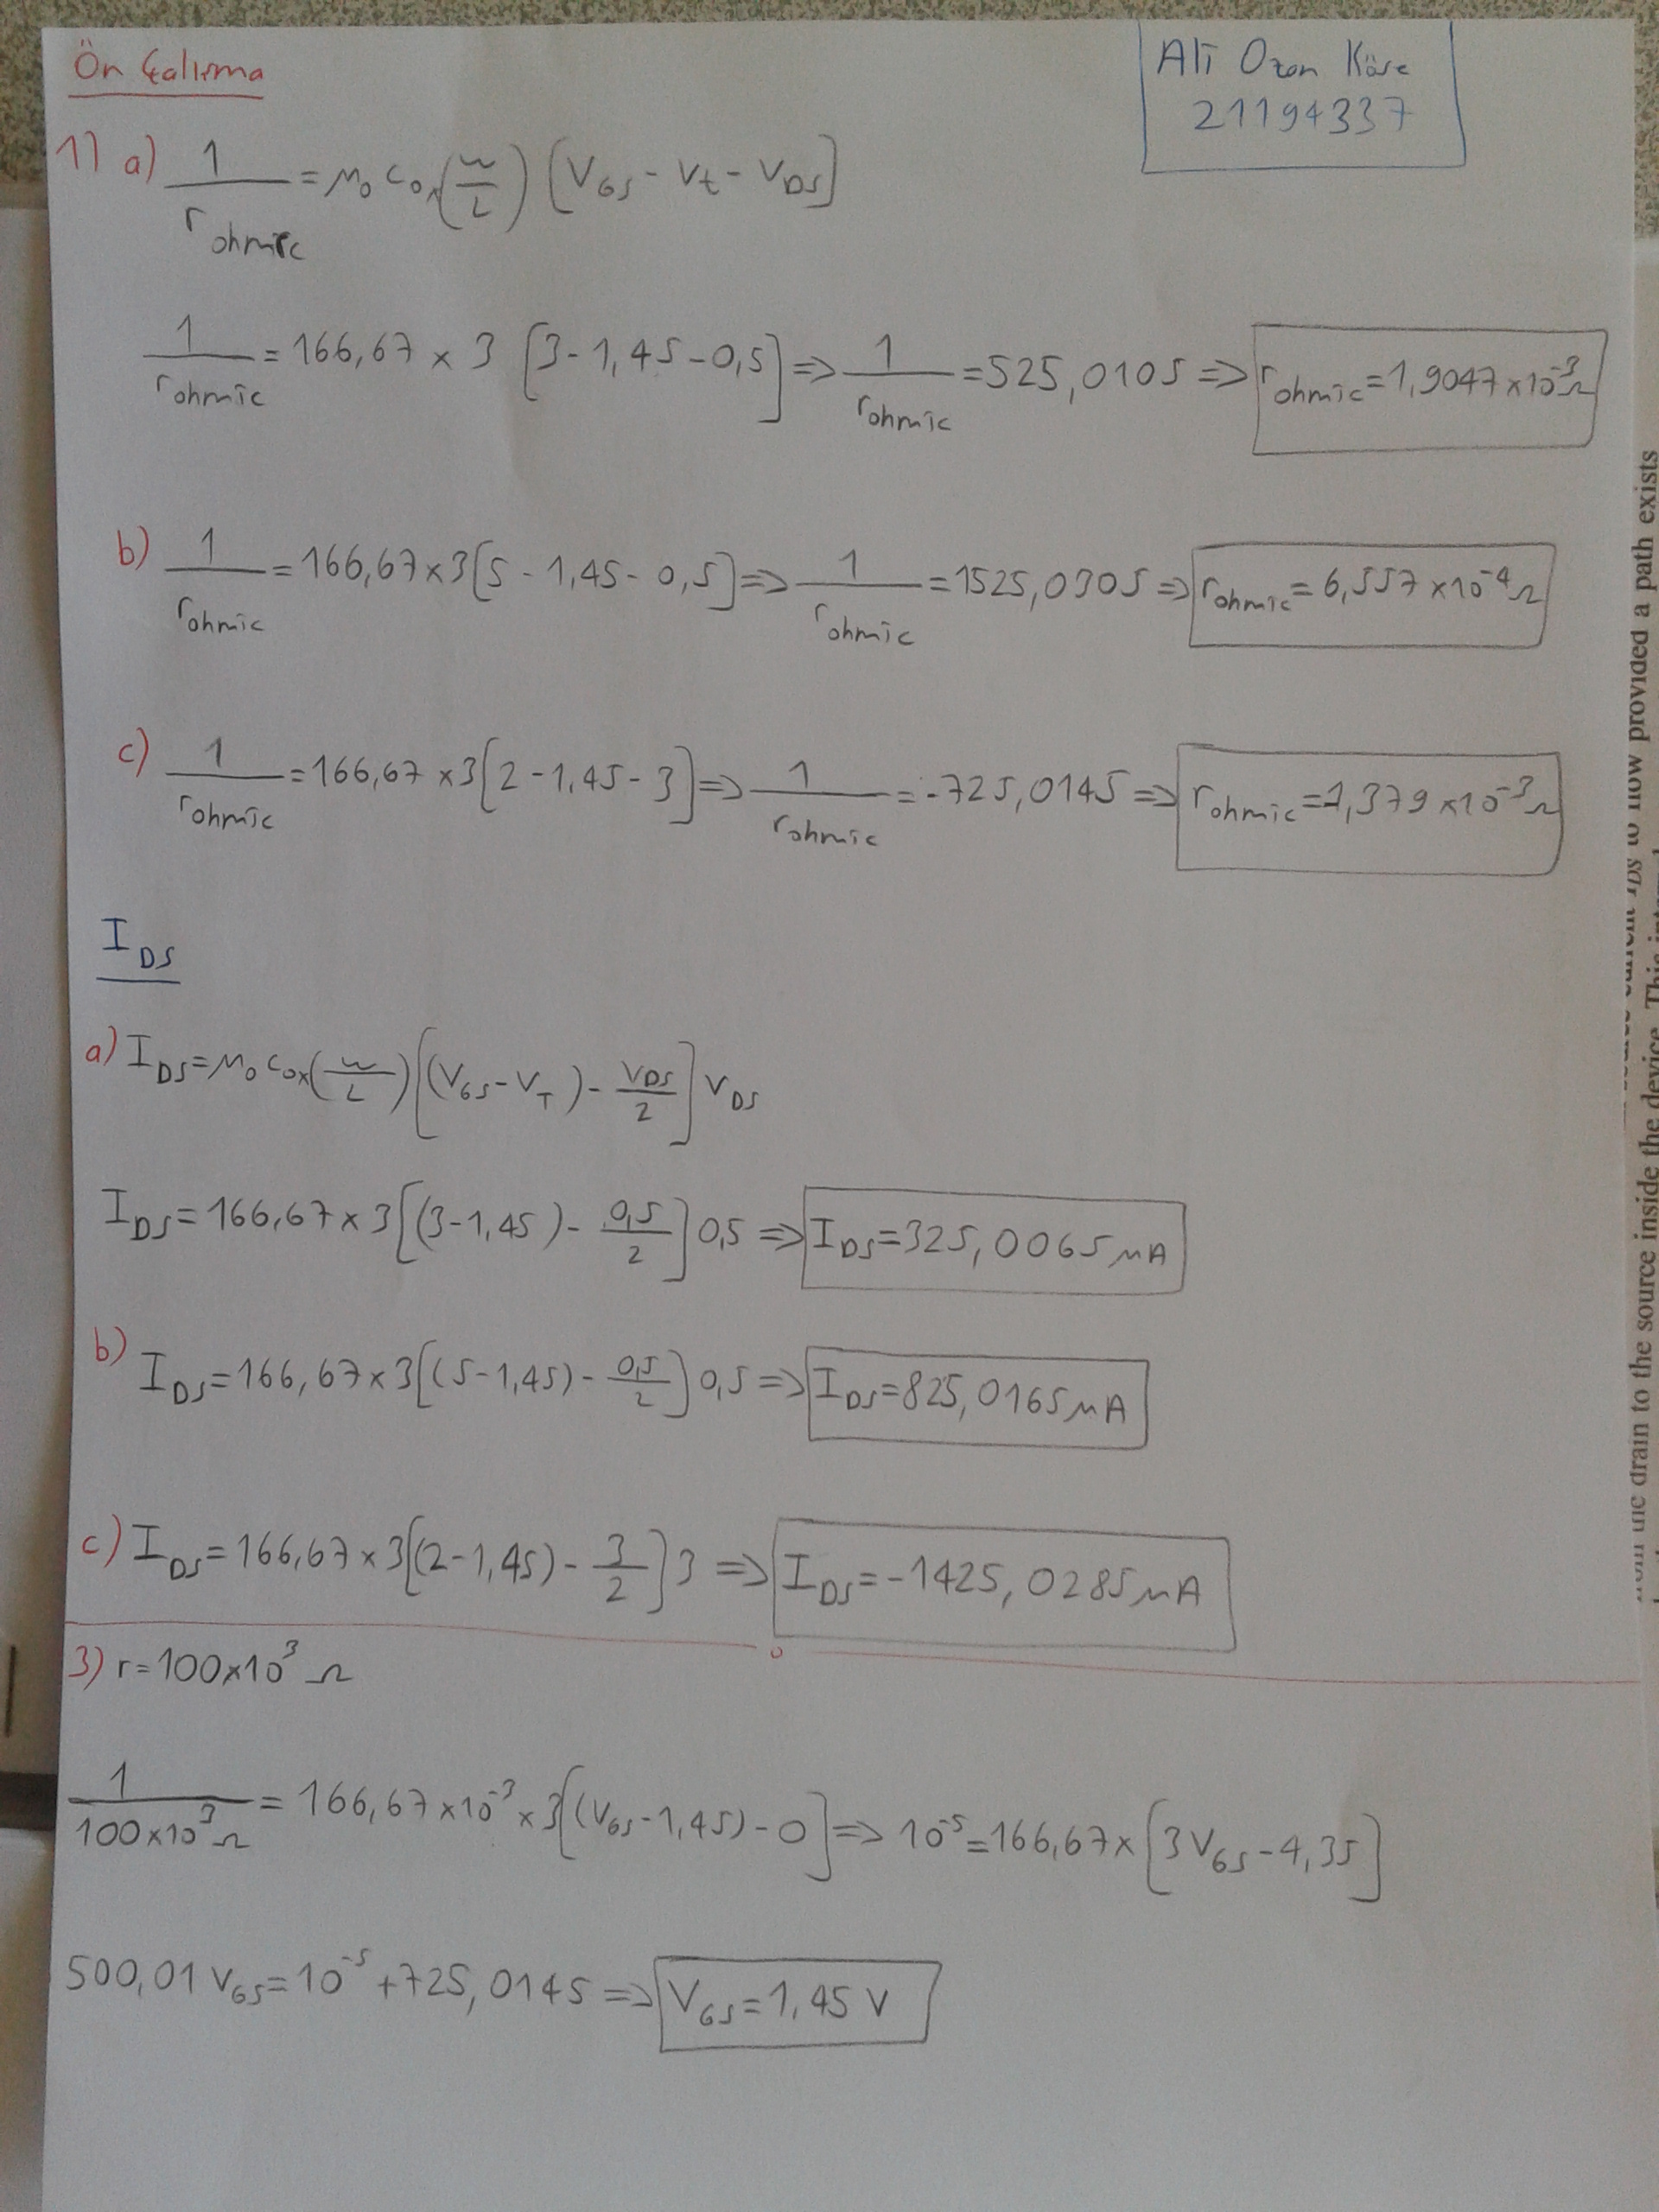 Ön Çalışma
Ali Ozan Köse
21194337
1) a) 1/r_ohmic = μ₀ Cox (W/L) [V_GS - V_t - V_DS]
1/r_ohmic = 166,67 x 3 [3 - 1,45 - 0,5] => 1/r_ohmic = 525,0105 => r_ohmic = 1,9047 x 10⁻³ Ω
b) 1/r_ohmic = 166,67 x 3 [5 - 1,45 - 0,5] => 1/r_ohmic = 1525,0305 => r_ohmic = 6,557 x 10⁻⁴ Ω
c) 1/r_ohmic = 166,67 x 3 [2 - 1,45 - 3] => 1/r_ohmic = -725,0145 => r_ohmic = 1,379 x 10⁻³ Ω
I_DS
a) I_DS = μ₀ Cox (W/L) [(V_GS - V_T) - V_DS/2] V_DS
I_DS = 166,67 x 3 [(3 - 1,45) - 0,5/2] 0,5 => I_DS = 325,0065 μA
b) I_DS = 166,67 x 3 [(5 - 1,45) - 0,5/2] 0,5 => I_DS = 825,0165 μA
c) I_DS = 166,67 x 3 [(2 - 1,45) - 3/2] 3 => I_DS = -1425,0285 μA
3) r = 100 x 10³ Ω
1/(100 x 10³ Ω) = 166,67 x 10⁻³ x 3 [(V_GS - 1,45) - 0] => 10⁻⁵ = 166,67 x [3 V_GS - 4,35]
500,01 V_GS = 10⁻⁵ + 725,0145 => V_GS = 1,45 V
from the drain to the source inside the device. This
current I_DS to flow provided a path exists